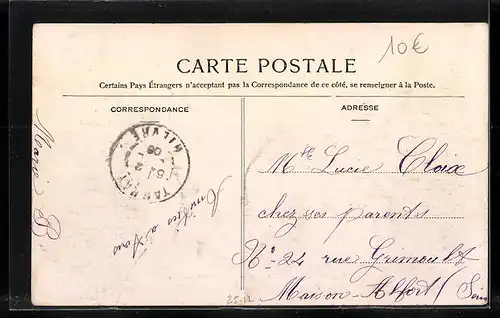 10€
CARTE POSTALE
Certains Pays Étrangers n'acceptant pas la Correspondance de ce côté, se renseigner à la Poste.
CORRESPONDANCE
Marie
Amitiés à tous
ADRESSE
Mlle Lucie Cloix
chez ses parents
No 24 rue Grimoult
Maison-Alfort (Seine
25-12